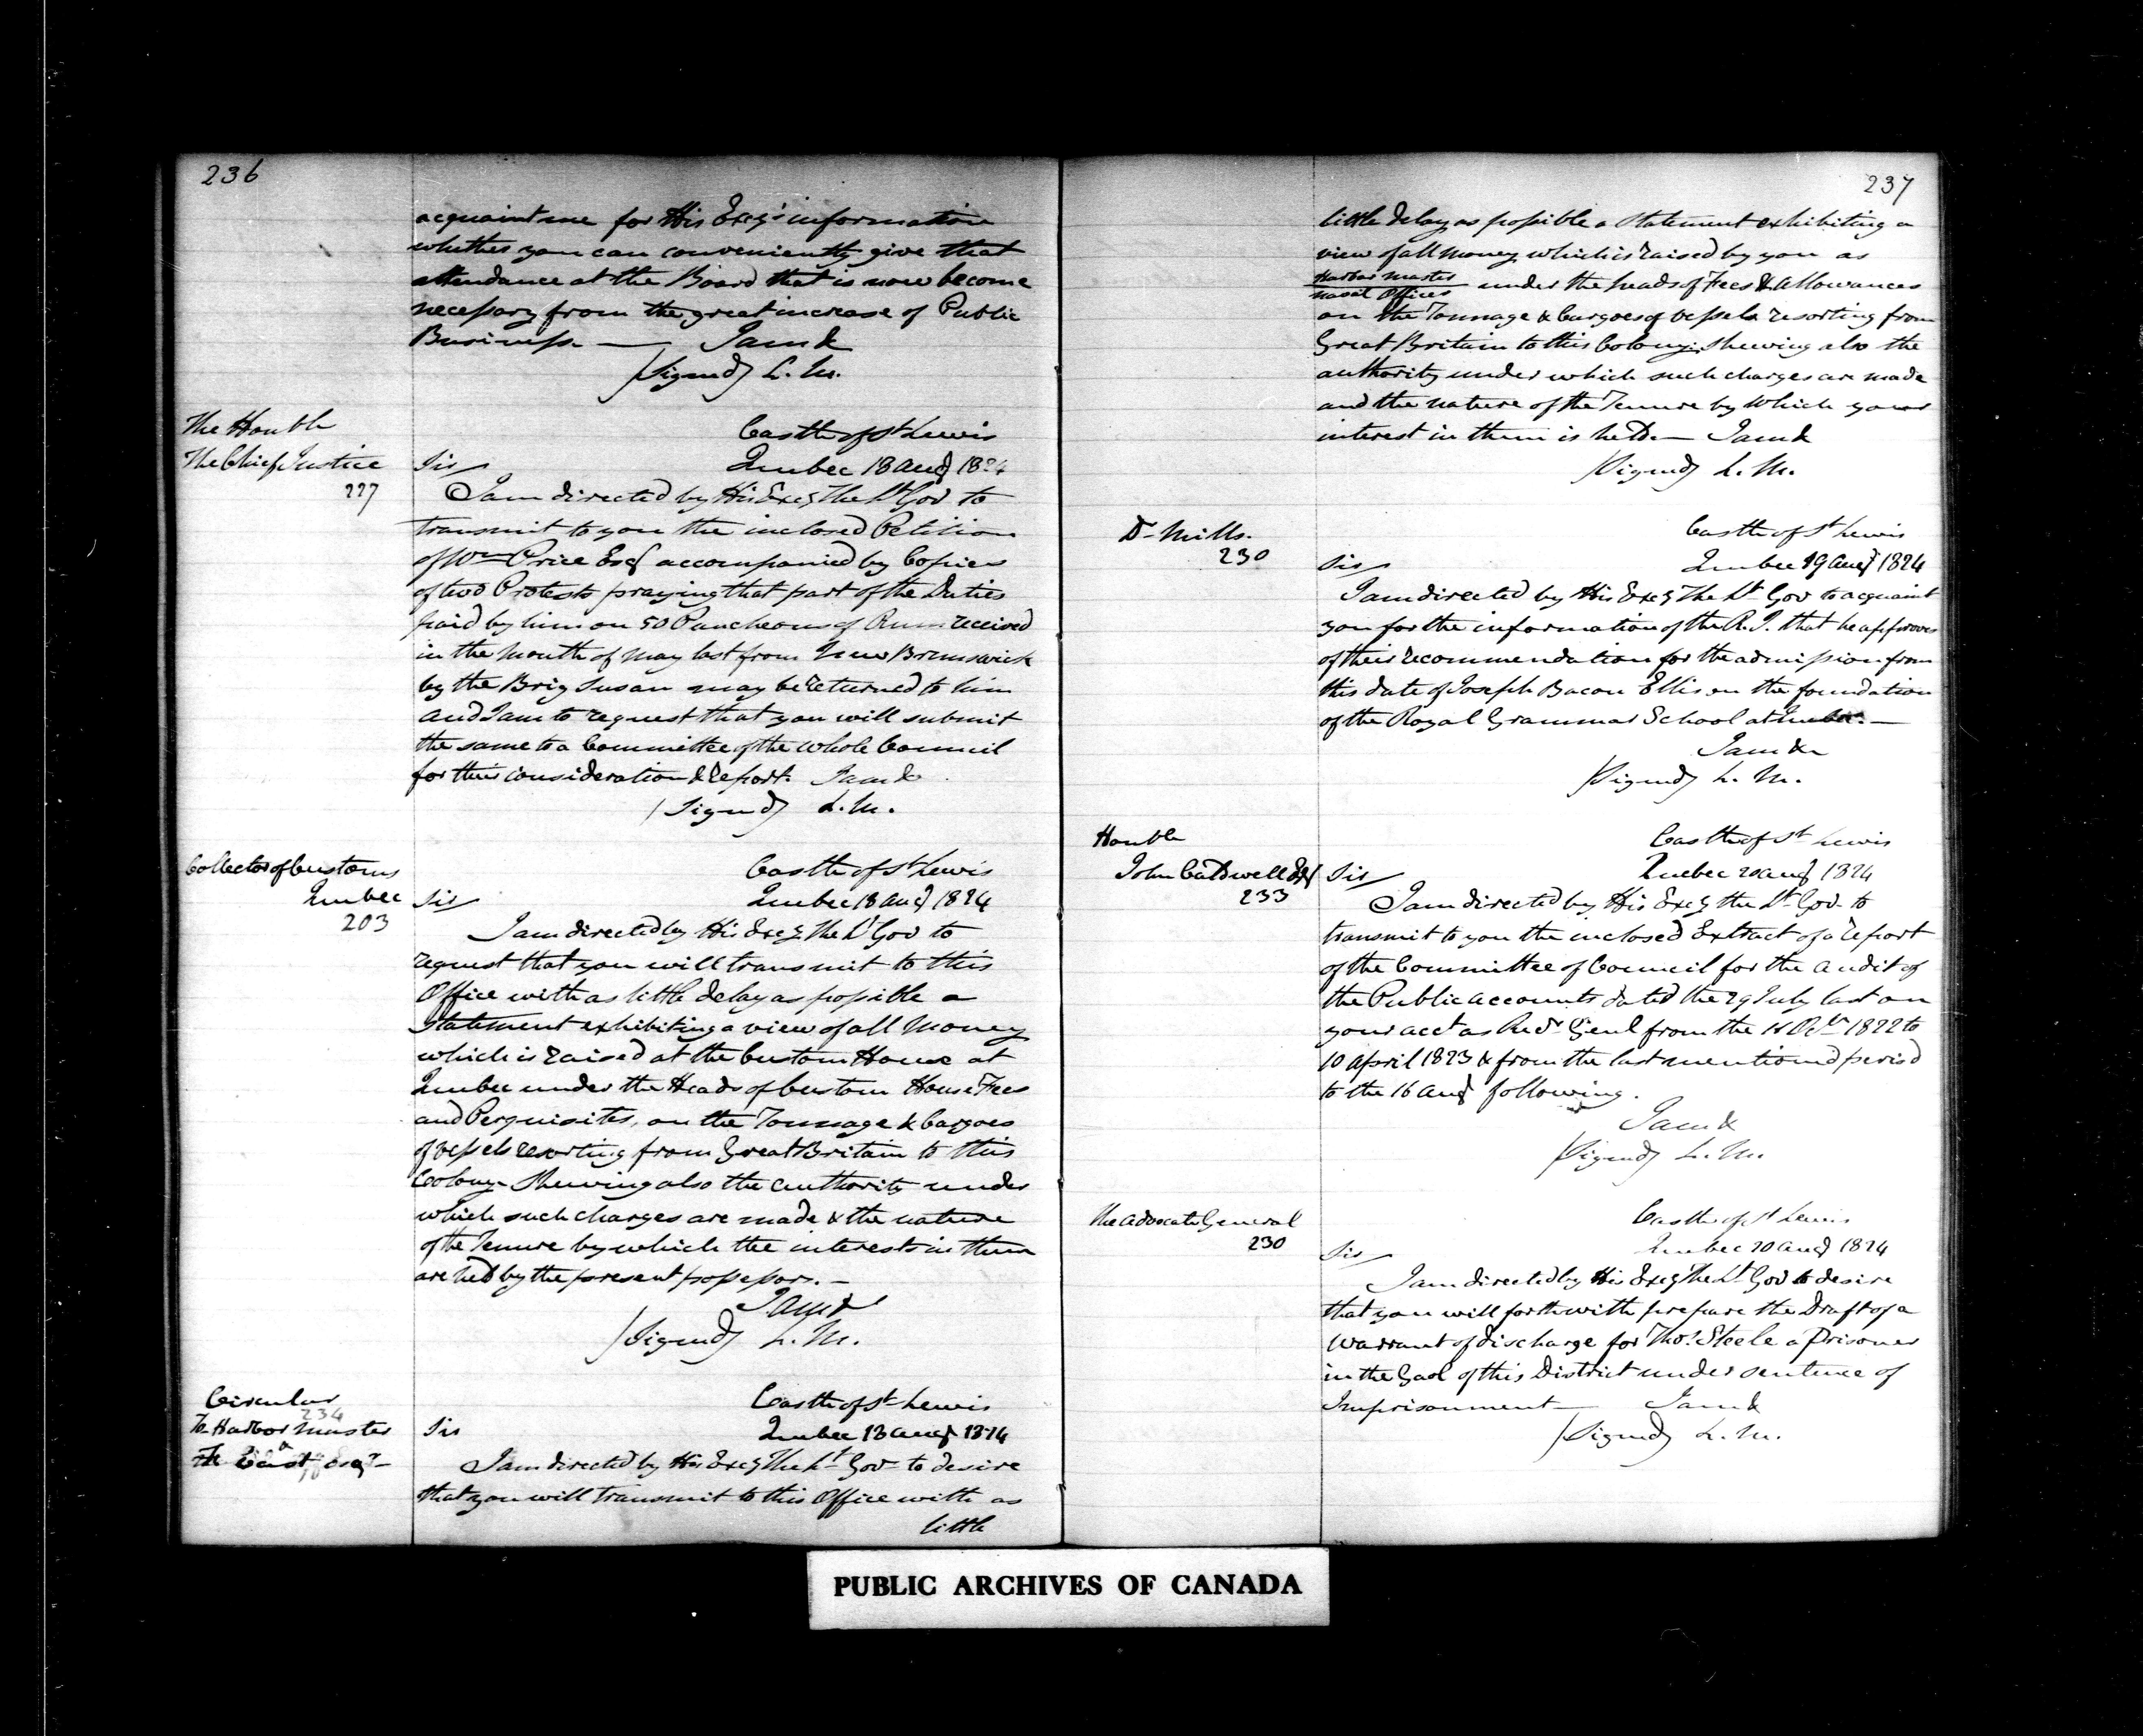 236
acquaint me for His Excy's information
whether you can conveniently give that
attendance at the Board that is now become
necessary from the great increase of Public
Business — I am &
(Signed) L. M.
The Honble
The Chief Justice
227
Castle of St Lewis
Sir Quebec 18 Augt 1824
I am directed by His Excy The Lt Gov to
transmit to you the inclosed Petition
of Wm Price Esq accompanied by Copies
of two Protests praying that part of the Duties
paid by him on 50 Puncheons of Rum received
in the month of May last from New Brunswick
by the Brig Susan may be returned to him
and I am to request that you will submit
the same to a Committee of the whole Council
for their consideration & Report. I am &
(Signed) L. M.
Collector of Customs
Quebec
203
Castle of St Lewis
Sir Quebec 18 Augt 1824
I am directed by His Excy The Lt Gov to
request that you will transmit to this
Office with as little delay as possible a
statement exhibiting a view of all Money
which is raised at the Custom House at
Quebec under the Heads of Custom House Fees
and Perquisites, on the Tonnage & Cargoes
of vessels resorting from Great Britain to this
Colony - Shewing also the authority under
which such charges are made & the nature
of the Tenure by which the interests in them
are held by the present possessors. —
I am &
(Signed) L. M.
Circular
234
To Harbor Master
Castle of St Lewis
Sir Quebec 18 Augt 1824
I am directed by His Excy The Lt Gov to desire
that you will transmit to this Office with as
little
237
little delay as possible a Statement exhibiting a
view of all money which is raised by you as
Harbor Master
Naval Officer under the heads of Fees & Allowances
on the Tonnage & Cargoes of vessels resorting from
Great Britain to this Colony; Shewing also the
authority under which such charges are made
and the nature of the Tenure by which your
interest in them is held. — I am &
(Signed) L. M.
Dr Mills.
230
Castle of St Lewis
Sir Quebec 19 Augt 1824
I am directed by His Excy The Lt Gov to acquaint
you for the information of the R. I. that he approves
of their recommendation for the admission from
this date of Joseph Bacon Ellis on the foundation
of the Royal Grammar School at Quebec. —
I am &
(Signed) L. M.
Honble
John Caldwell Esq
233
Castle of St Lewis
Sir Quebec 20 Augt 1824
I am directed by His Excy the Lt Gov to
transmit to you the inclosed Extract of a Report
of the Committee of Council for the audit of
the Public accounts dated the 29 July last on
your acct as Recr Genl from the Octr 1822 to
10 April 1823 & from the last mentioned period
to the 16 Augt following.
I am &
(Signed) L. M.
The Advocate General
230
Castle of St Lewis
Sir Quebec 20 Augt 1824
I am directed by His Excy The Lt Gov to desire
that you will forthwith prepare the Draft of a
Warrant of discharge for Thos Steele a Prisoner
in the Gaol of this District under sentence of
Imprisonment — I am &
(Signed) L. M.
PUBLIC ARCHIVES OF CANADA